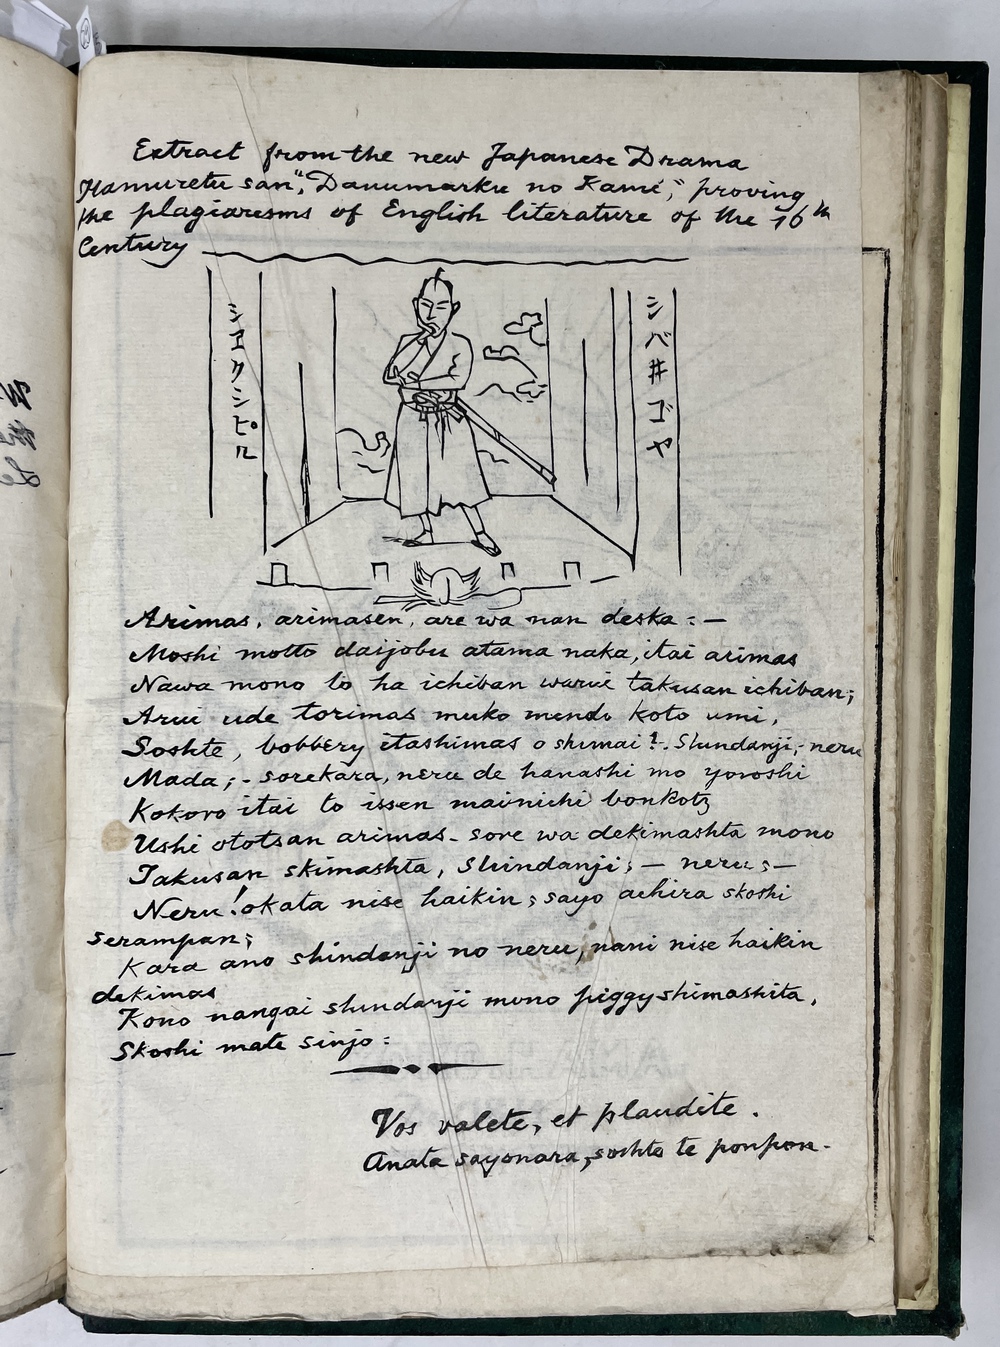 Extract from the new Japanese Drama
Hamuretu san", "Danumarku no Kami", proving
the plagiaresms of English literature of the 16th
Century
シエクシピル
シバ井ゴヤ
Arimas, arimasen, are wa nan deska : —
Moshi motto daijobu atama naka, itai arimas
Nawa mono to ha ichiban warui takusan ichiban;
Arui ude torimas muko mendo koto umi,
Soshte, bobbery itashimas o shimai ?. Shindanji; - neru
Mada; - sorekara, neru de hanashi mo yoroshi
Kokoro itai to issen mainichi bonkotz
Ushi ototsan arimas - sore wa dekimashta mono
Takusan skimashta, Shindanji; — neru; —
Neru! okata nise haikin; sayo achira skoshi
serampan;
Kara ano shindanji no neru, nani nise haikin
dekimas
Kono nangai shindanji mono piggy shimashita,
Skoshi mate sinjo :
Vos valete, et plaudite.
Anata sayonara, soshte te ponpon.